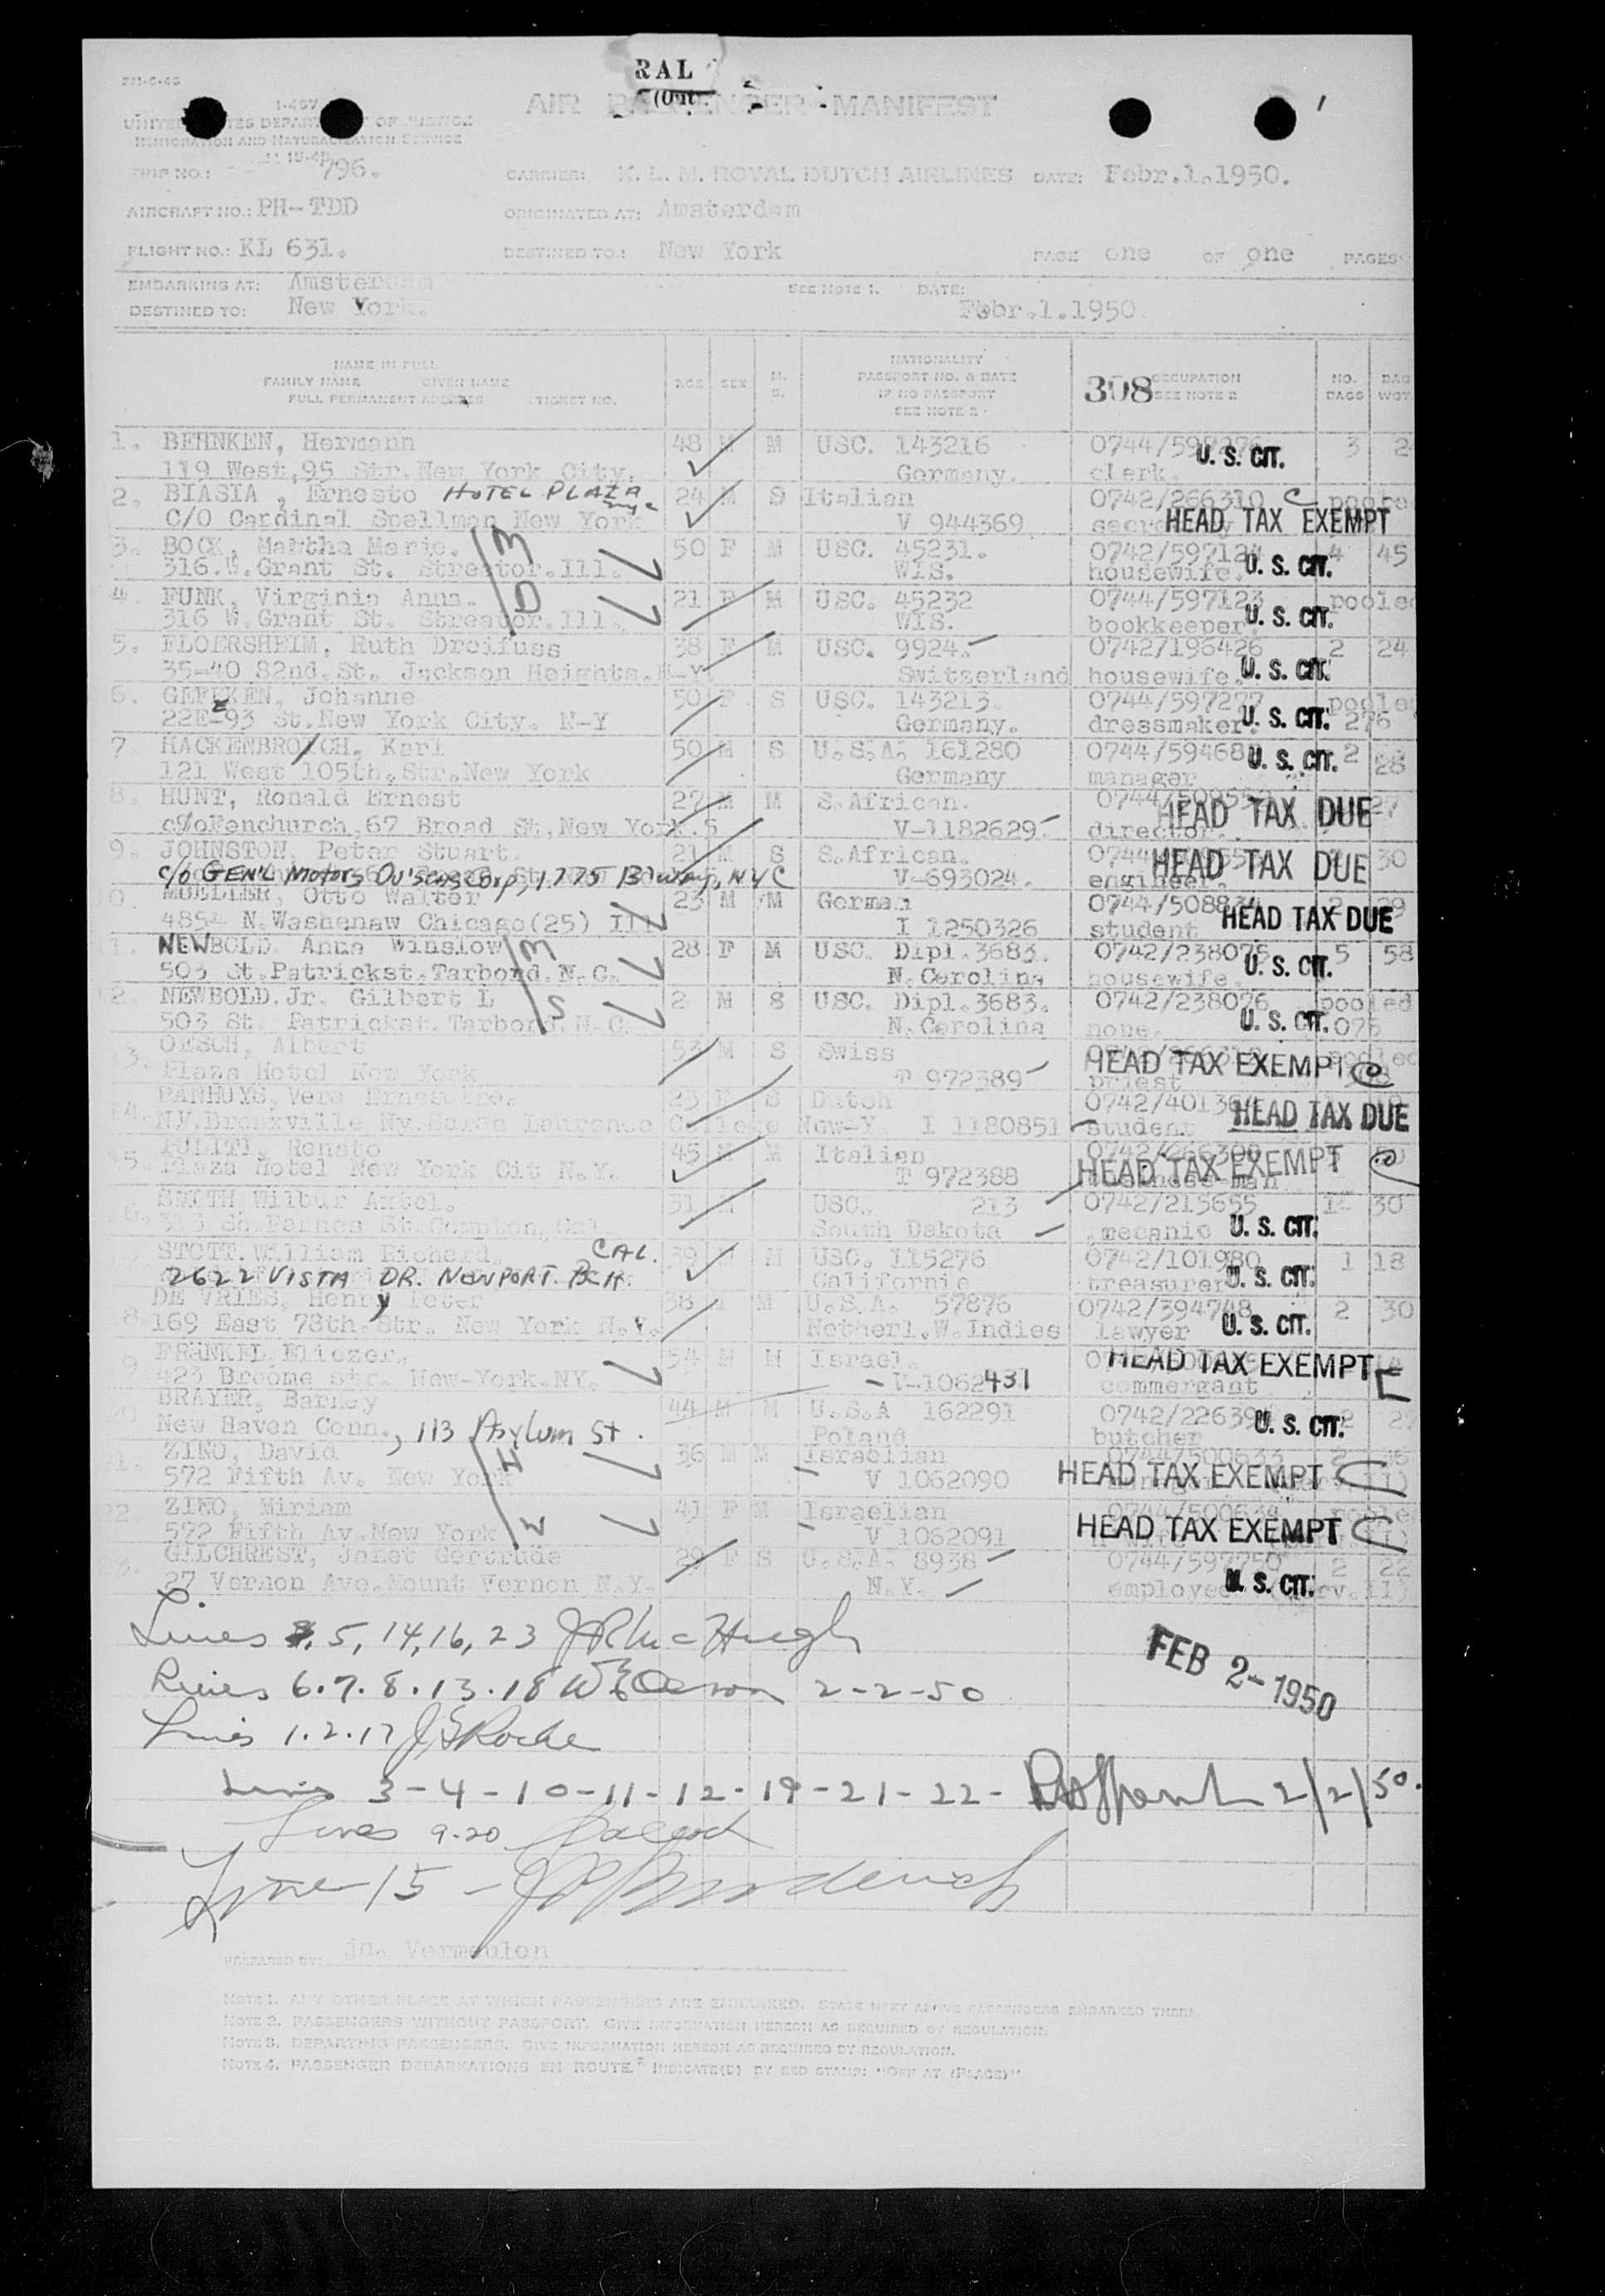 RAL
(Out).
FM-6-49
I-407
AIR PASSENGER MANIFEST
UNITED STATES DEPARTMENT OF JUSTICE
IMMIGRATION AND NATURALIZATION SERVICE
TRIP NO.: 796. CARRIER: K. L. M. ROYAL DUTCH AIRLINES DATE: Febr.1.1950.
AIRCRAFT NO.: PH-TDD ORIGINATED AT: Amsterdam
FLIGHT NO.: KL 631. DESTINED TO: New York PAGE one OF one PAGES
EMBARKING AT: Amsterdam SEE NOTE 1. DATE:
DESTINED TO: New York. Febr.1.1950.
NAME IN FULL NATIONALITY
FAMILY NAME GIVEN NAME AGE SEX M. S. PASSPORT NO. & DATE 308 OCCUPATION NO. BAG
FULL PERMANENT ADDRESS TICKET NO. IF NO PASSPORT SEE NOTE 2 BAGS WGT.
SEE NOTE 2
1. BEHNKEN, Hermann 48 M M USC. 143216 0744/597276 3
119 West,95 Str.New York City. Germany. clerk. U. S. CIT.
2. BIASIA , Ernesto HOTEL PLAZA 24 M S Italian 0742/266310 C pooled
C/O Cardinal Spellman New York V 944369 HEAD TAX EXEMPT
3. BOCK, Martha Marie. 50 F M USC. 45231. 0742/597124 4 45
316.W.Grant St. Streator.Ill. WIS. housewife. U. S. CIT.
4. FUNK, Virginia Anna. 21 F M USC. 45232 0744/597123 pooled
316 W.Grant St. Streator.Ill. WIS. bookkeeper. U. S. CIT.
5. FLOERSHEIM, Ruth Dreifuss 38 F M USC. 9924. 0742/196426 2 24
35-40 82nd.St. Jackson Heights.N-Y. Switzerland housewife. U. S. CIT.
6. GEFFKEN, Johanne 50 F S USC. 143213. 0744/597277 pooled
22E-93 St.New York City. N-Y Germany. dressmaker. U. S. CIT. 276
7. HACKENBROICH, Karl 50 M S U.S.A. 161280 0744/59468 2 28
121 West 105th.Str.New York Germany manager U. S. CIT.
8. HUNT, Ronald Ernest 27 M M S.African. 27
c/oFenchurch,67 Broad St,New York.5 V-1182629. director. HEAD TAX DUE
9. JOHNSTON, Peter Stuart. 21 M S S.African. 30
c/o GEN'L Motors Ov'seas Corp, 1775 B'way, NYC V-693024. engineer. HEAD TAX DUE
10. MUELLER, Otto Walter 23 M M German 0744/508834 2 29
4854 N.Washenaw Chicago(25) Ill I 1250326 student HEAD TAX DUE
1. NEWBOLD Anna Winslow 28 F M USC. Dipl.3683. 0742/238075 5 58
503 St.Patrickst.Tarbord.N.C. N.Carolina housewife. U. S. CIT.
2. NEWBOLD.Jr. Gilbert L 2 M S USC. Dipl.3683. 0742/238076 pooled
503 St. Patrickst.Tarbord.N.C. N.Carolina none. U. S. CIT. 075
3. OESCH, Albert 53 M S Swiss
Plaza Hotel New York T 972389 priest HEAD TAX EXEMPT
14. PANHUYS, Vera Ernestine. 23 F S Dutch 0742/401364
N.Y.Bronxville Ny.Sarah Lawrence College New-Y. I 1180851 student HEAD TAX DUE
5. PULITI, Renato 45 M M Italian
Plaza Hotel New York Cit N.Y. T 972388 HEAD TAX EXEMPT
6. SMITH Wilbur Axtel. 31 M USC. 213 0742/215655 30
St.Compton,Cal South Dakota mecanic U. S. CIT.
STOTT.William Richard. CAL. 39 M USC. 115276 0742/101980 1 18
2622 VISTA DR. NEWPORT. BCH. California treasurer U. S. CIT.
8. DE VRIES, Henry Peter 38 M U.S.A. 57876 0742/394748 2 30
169 East 78th.Str. New York N.Y. Netherl.W.Indies lawyer U. S. CIT.
9. FRANKEL Eliezer. 54 M M Israel.
423 Broome str. New-York.NY. V-1062431 commergant HEAD TAX EXEMPT
20. BRAYER, Barney 44 M M U.S.A 162291 0742/22639 2
New Haven Conn., 113 Asylum St. Poland butcher U. S. CIT.
ZINO, David 36 M M Israelian 0744/500633
572 Fifth Av. New York V 1062090 HEAD TAX EXEMPT
22. ZINO, Miriam 41 F M Israelian 0744/500634 pooled
572 Fifth Av.New York V 1062091 HEAD TAX EXEMPT
3. GILCHREST, Janet Gertrude 29 F S U.S.A. 8938 0744/597750 2 22
27 Vernon Ave.Mount Vernon N.Y. N.Y. employee U. S. CIT.
Lines 5, 14, 16, 23 J R McHugh
Lines 6. 7. 8. 13. 18 2-2-50
FEB 2-1950
Lines 1. 2. 17 Roche
Lines 3-4-10-11-12-19-21-22- 2/2/50.
Lines 9-20
Line 15 -
PREPARED BY: Jn. Vermeulen
NOTE 1. ANY OTHER PLACE AT WHICH PASSENGERS ARE EMBARKED. STATE NEXT ABOVE PASSENGERS EMBARKED THERE.
NOTE 2. PASSENGERS WITHOUT PASSPORT. GIVE INFORMATION HEREON AS REQUIRED BY REGULATION.
NOTE 3. DEPARTING PASSENGERS. GIVE INFORMATION HEREON AS REQUIRED BY REGULATION.
NOTE 4. PASSENGER DEBARKATIONS EN ROUTE. INDICATE(D) BY RED STAMP: "OFF AT (PLACE)"